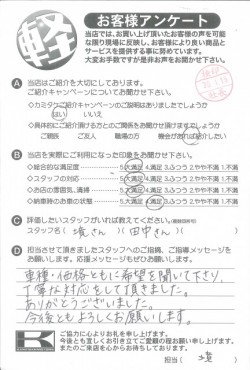 軽
お客様アンケート
当店では、お買い上げ頂いたお客様の声を可能
な限り現場に反映し、お客様により良い商品と
サービスを提供する事に努めています。
大変お手数ですが是非お声をお聞かせ下さい。
A 当店はご紹介を大切にしております。
ご紹介キャンペーンについてお聞かせ下さい。
◇カミタウンご紹介キャンペーンのご説明はありましたでしょうか
はい いいえ
◇具体的にご紹介頂ける方とのご関係をお聞かせ頂けますでしょうか
ご親族 ご友人 職場の方 機会があれば紹介したい
B 当店を実際にご利用になった印象をお聞かせ下さい。
◇総合的な満足度 5.大満足 4.満足 3.ふつう 2.やや不満 1.不満
◇スタッフの対応 5.大満足 4.満足 3.ふつう 2.やや不満 1.不満
◇お店の雰囲気、清掃 5.大満足 4.満足 3.ふつう 2.やや不満 1.不満
◇納車時のお車の状態 5.大満足 4.満足 3.ふつう 2.やや不満 1.不満
C 評価したいスタッフがいれば教えてください。(複数回答可)
スタッフ名( 境 さん )( 田中 さん )
D 担当させて頂きましたスタッフへのご指摘、ご指導メッセージを
お願いします。応援メッセージもぜひお聞かせ下さい。
車種・価格ともに希望を聞いて下さり、
丁寧な対応をして頂きました。
ありがとうございました。
今後ともよろしくお願いします。
K
ご協力に心よりお礼を申し上げます。
今後とも宜しくお引き立てご愛顧の程お願い申し上げます。
またのご来店を心からお待ちしております。
担当( 境 )